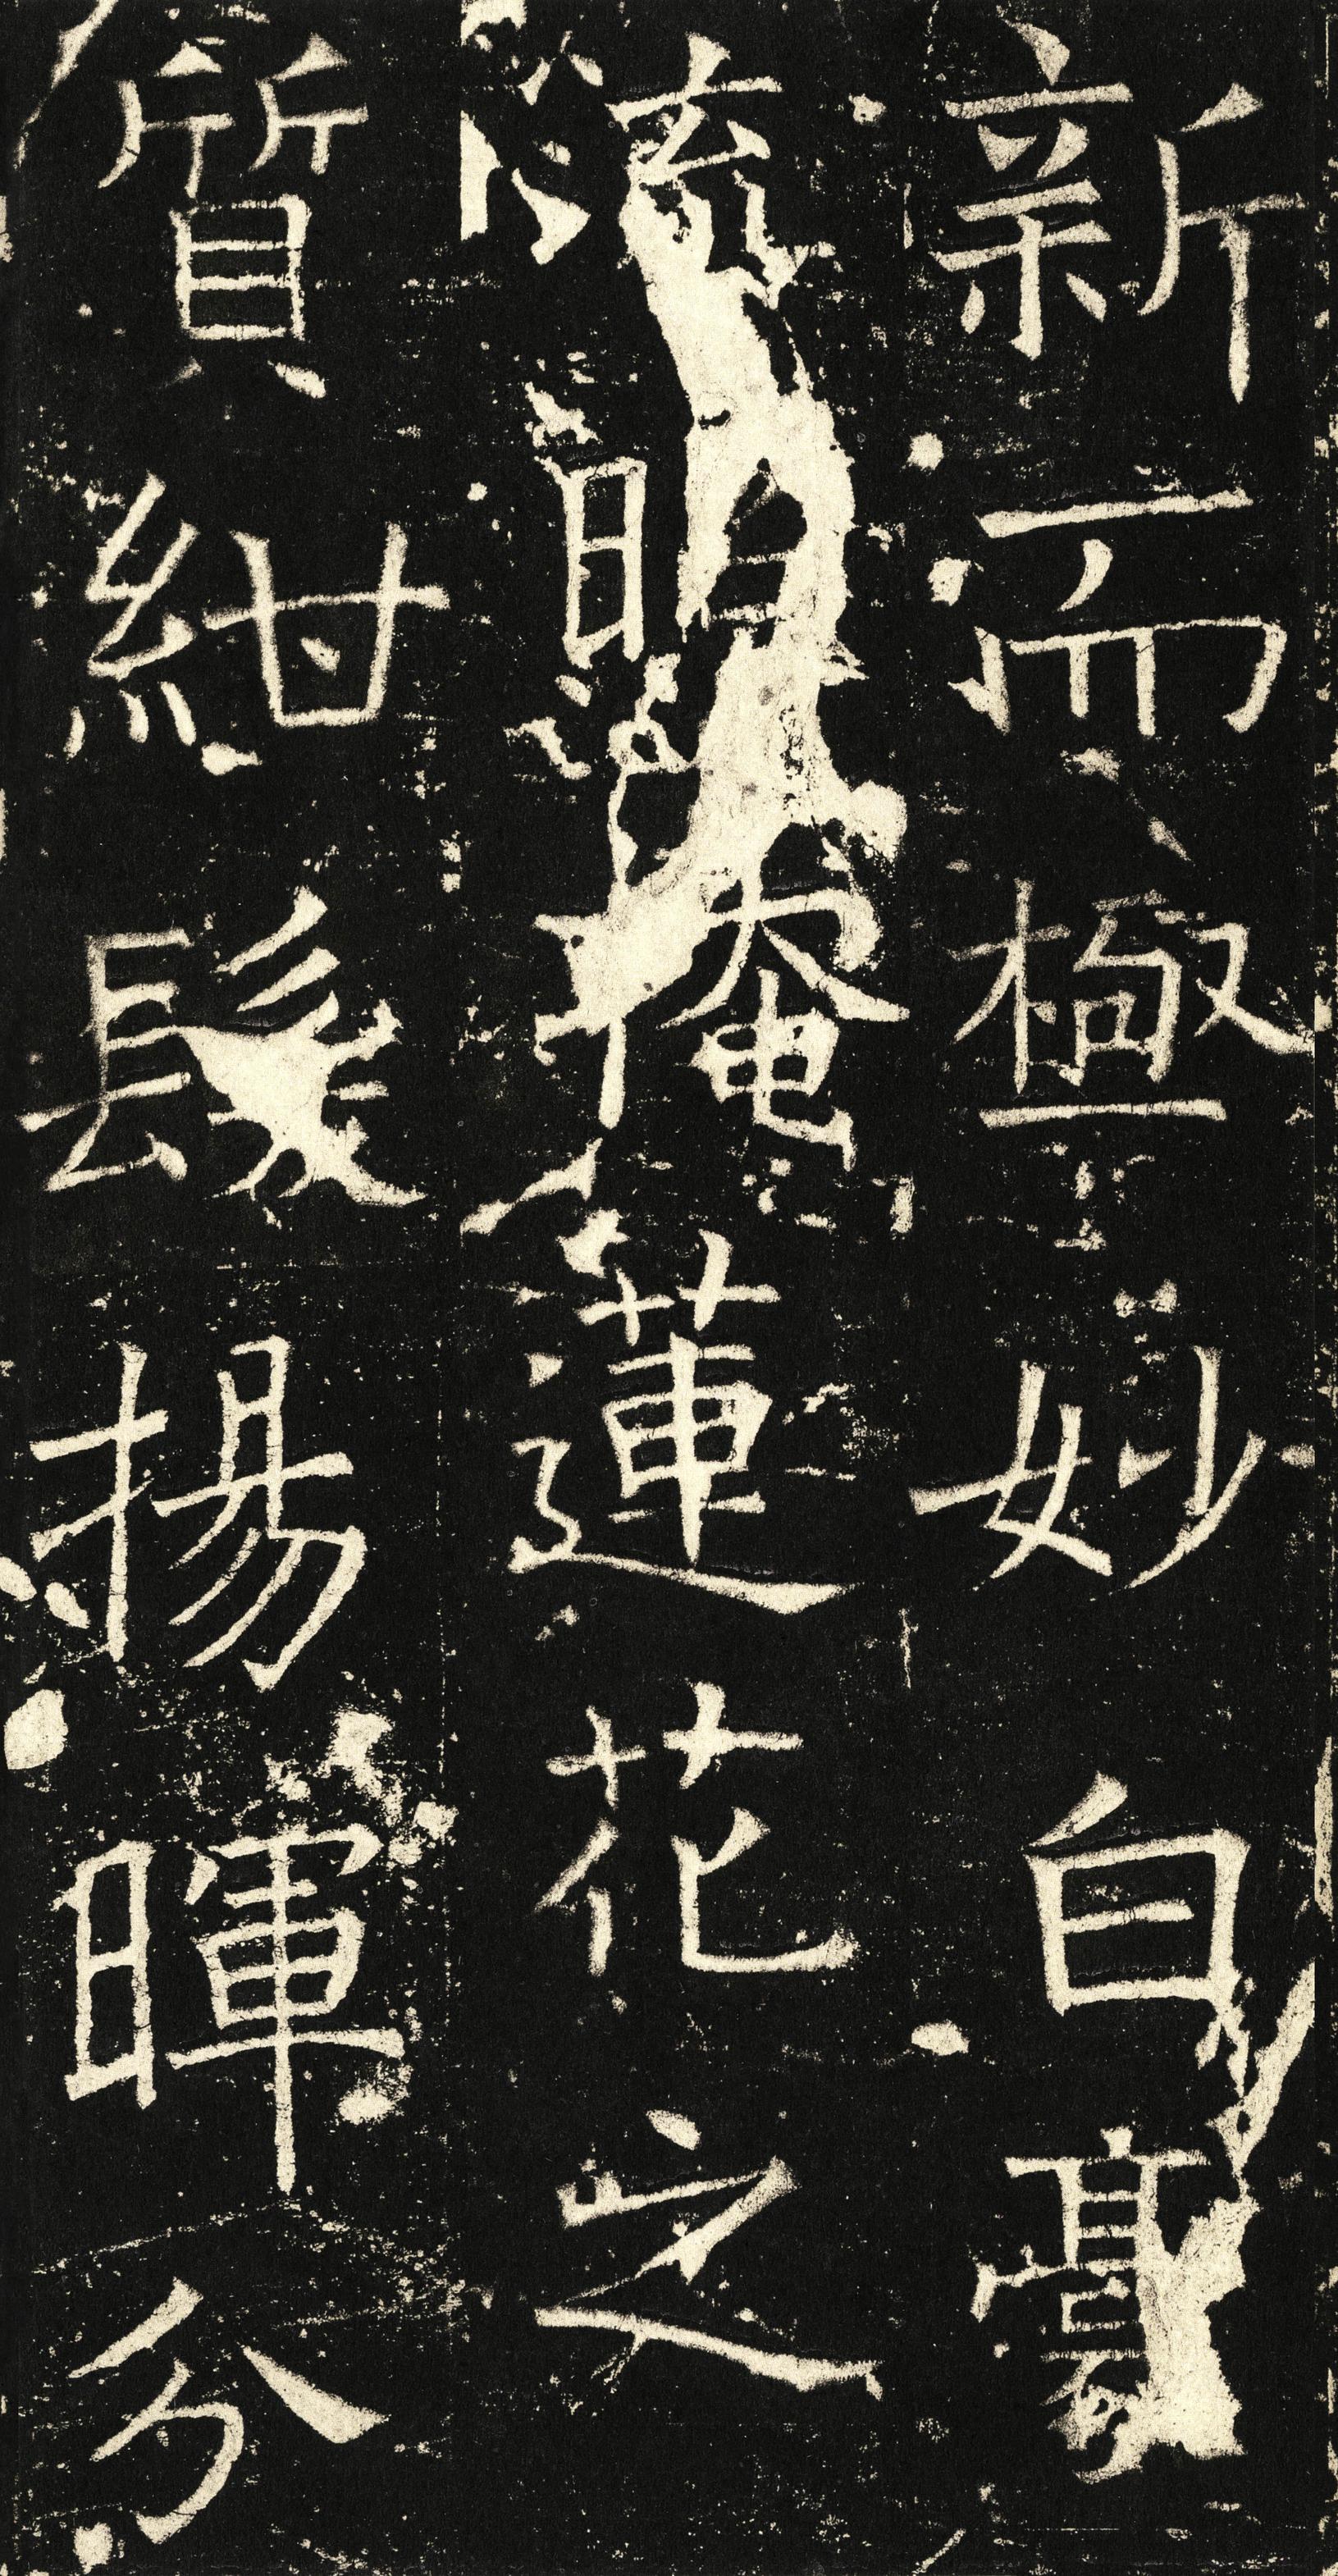 新而極妙白毫
流照掩蓮花之
質紺髮揚暉分